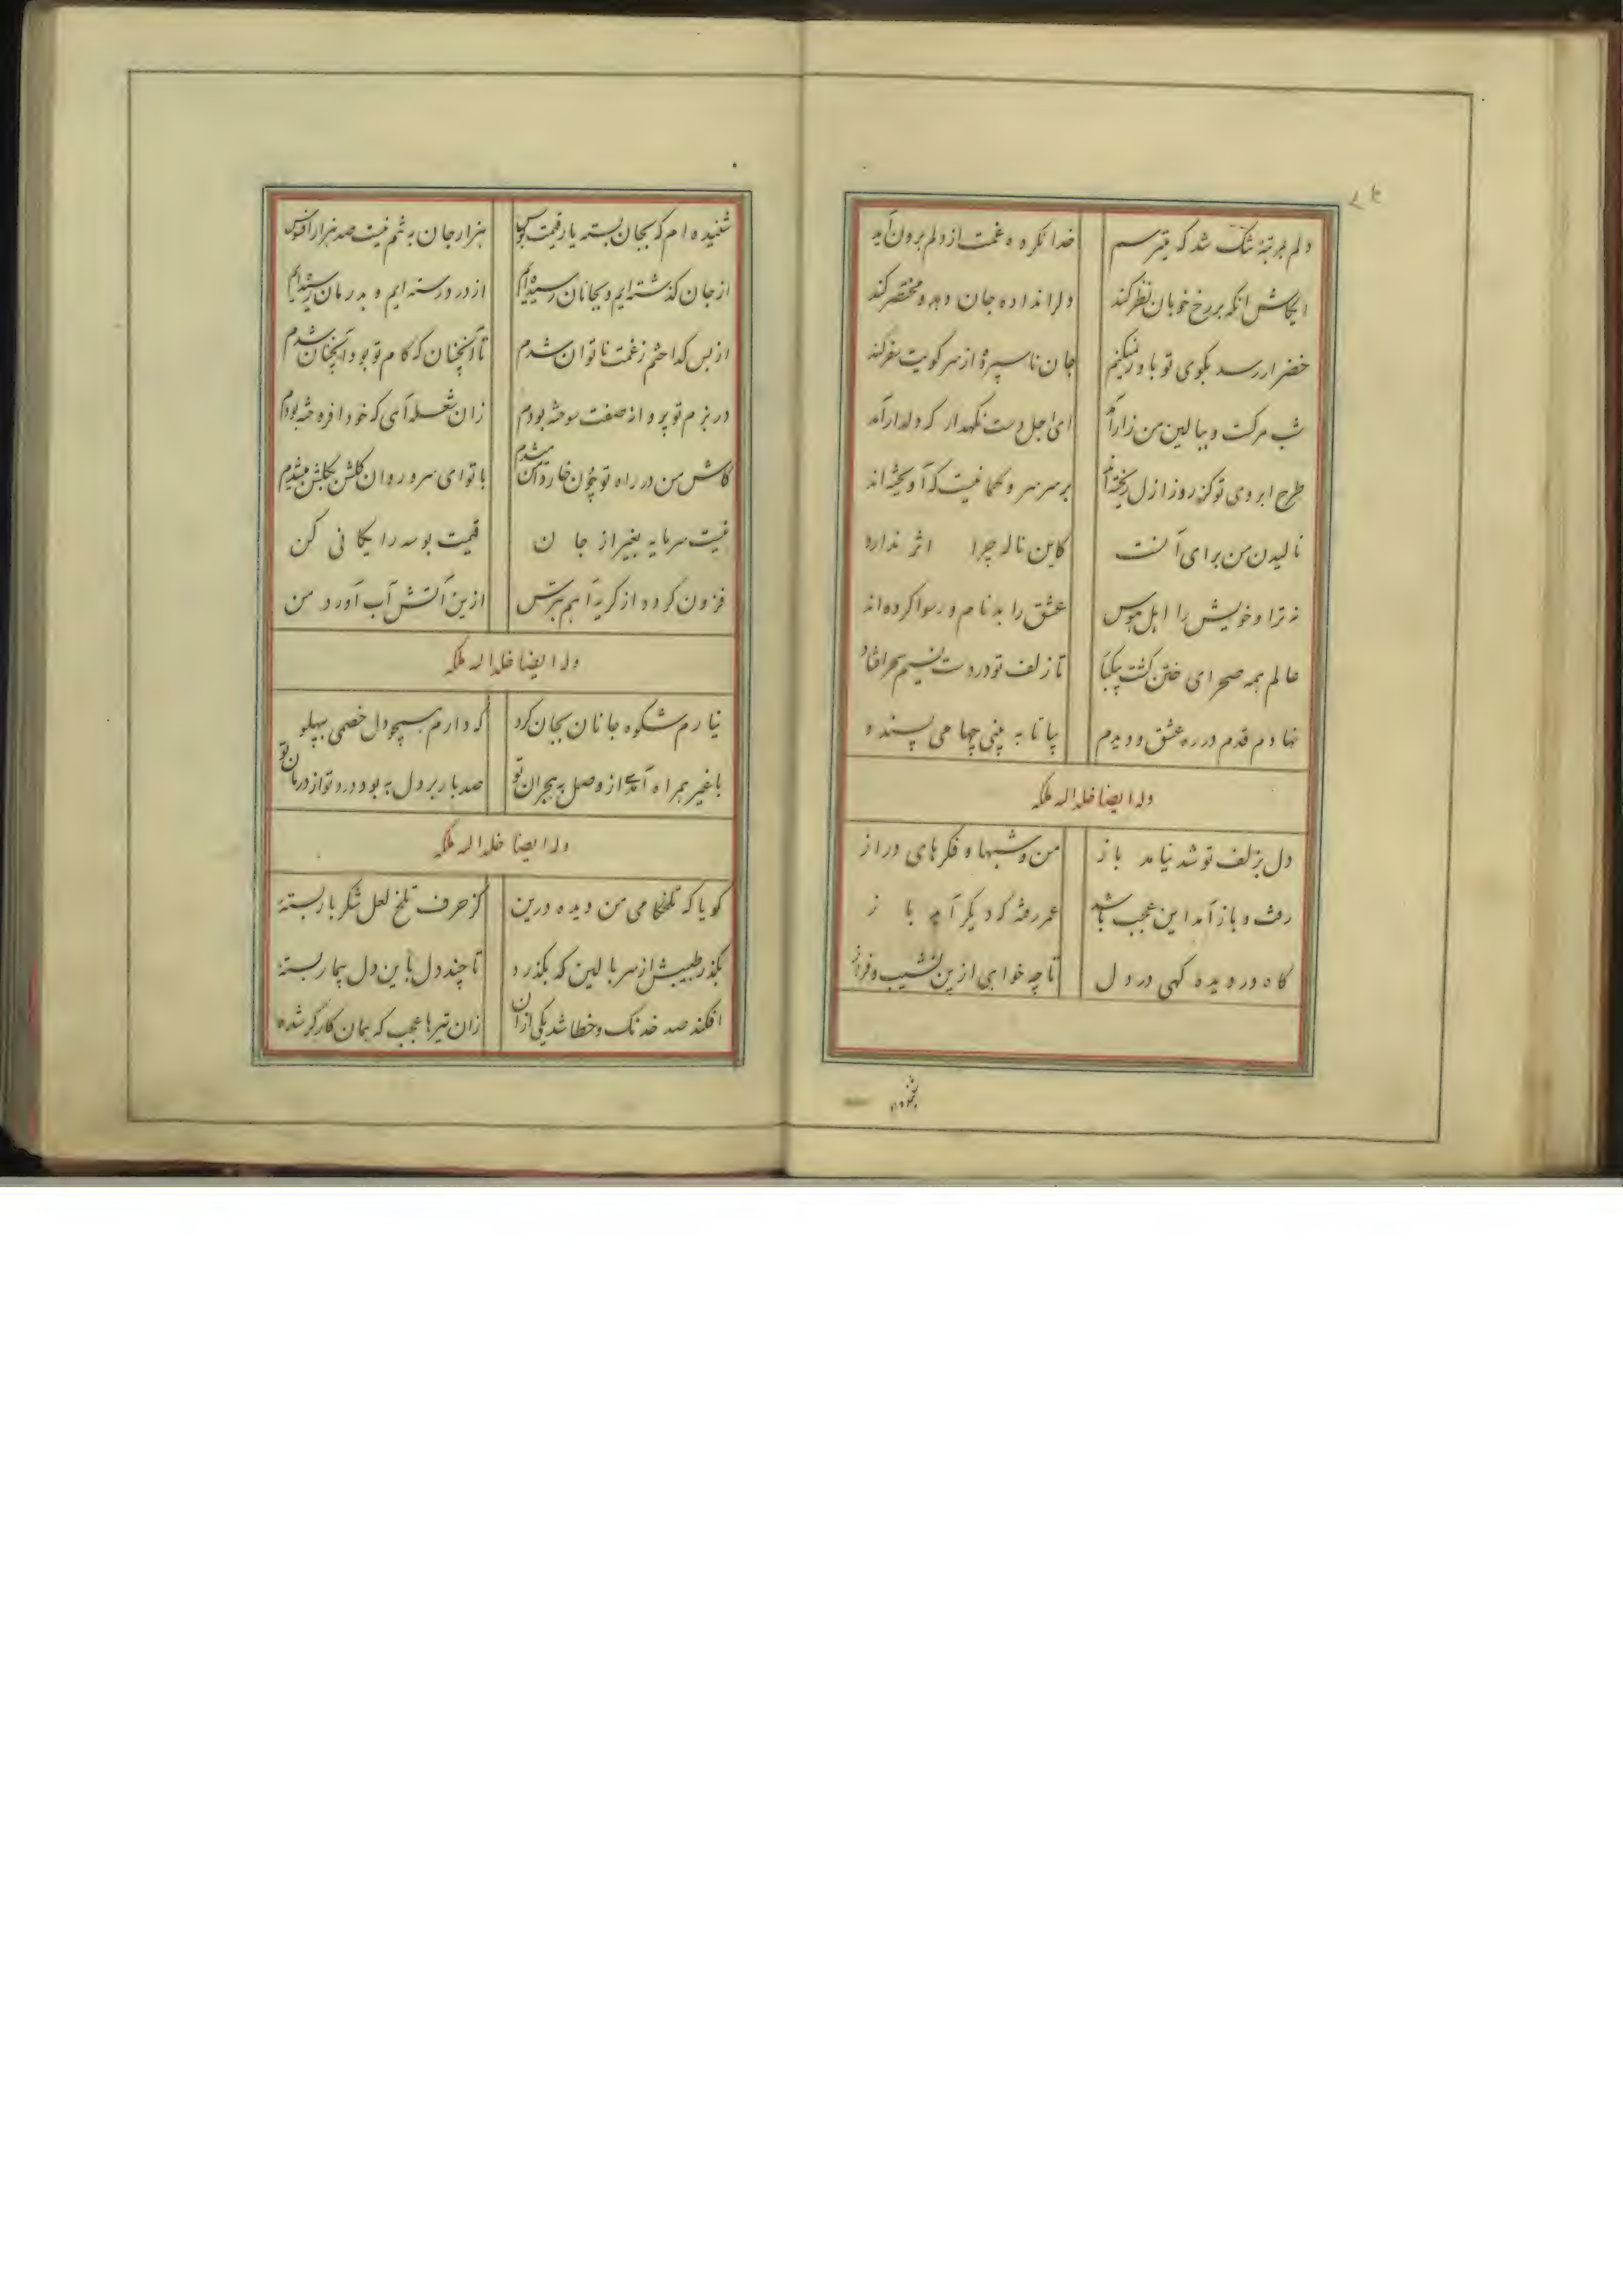 دلم بمرتبهٔ تنک شد که میترسم خدا نکرده غمت از دلم برون آید
ایکاش انکه بر رخ خوبان نظر کند دل را نداده جان دهد و مختصر کند
خضر ار رسد بکوی تو باور نمیکنم جان ناسپرده از سر کویت سفر کند
شب مرکست و ببالین من زار آمد ای اجل دست نکهدار که دلدار آمد
طرح ابروی تو کز روز ازل ریخته‌اند بر سر سرو کمانیست که آویخته‌اند
نالیدن من برای آنست کاین ناله چرا اثر ندارد
نه ترا و خویش را اهل هوس عشق را بدنام و رسوا کرده‌اند
عالم همه صحرای ختن کشت چکبا تا زلف تو در دست نسیم سحر افتاد
نهادم قدم در ره عشق و دیدم بیا تا به بینی چها می پسندد
وله ایضا خلد الله ملکه
دل بزلف تو شد نیامد باز من و شبها و فکرهای دراز
رفت و باز آمد این عجب باشد عمر رفته که دیگر آید باز
گاه در دیده کهی در دل تا چه خواهی ازین نشیب و فراز
شنیده‌ام که بجان بسته یار قیمت بوس هزار جان به تنم نیست صد هزار افسوس
از جان کذشته‌ایم و بجانان رسیده‌ایم از درد رسته‌ایم و بدرمان رسیده‌ایم
از بس کداختم زغمت ناتوان شدم تا آنچنان که کام تو بود آنچنان شدم
در بزم تو پروانه صفت سوخته بودم زان شعله‌ای که خود افروخته بودم
کاش من در راه تو چون خار دامن میشدم با تو ای سرو روان کلشن بکلشن میشدم
نیست سرمایه بغیر از جان قیمت بوسه رایکانی کن
فزون کردد از کریه آهم بترس ازین آتش آب آورد من
وله ایضا خلد الله ملکه
نیارم شکوه جانان بجان کرد که دارم همچو دل خصمی بپهلو
با غیر همراه آمدی از وصل به هجران تو صد بار بر دل به بود درد تو از درمان تو
وله ایضا خلد الله ملکه
کویا که تلخکامی من دیده درین کز حرف تلخ لعل شکربار بستهٔ
بکذر طبیبش از سر بالین که بکذرد تا چند دل باین دل بیمار بستهٔ
افکند صد خدنک و خطا شد یکی از آن زان تیرها عجب که همان کارکر شده